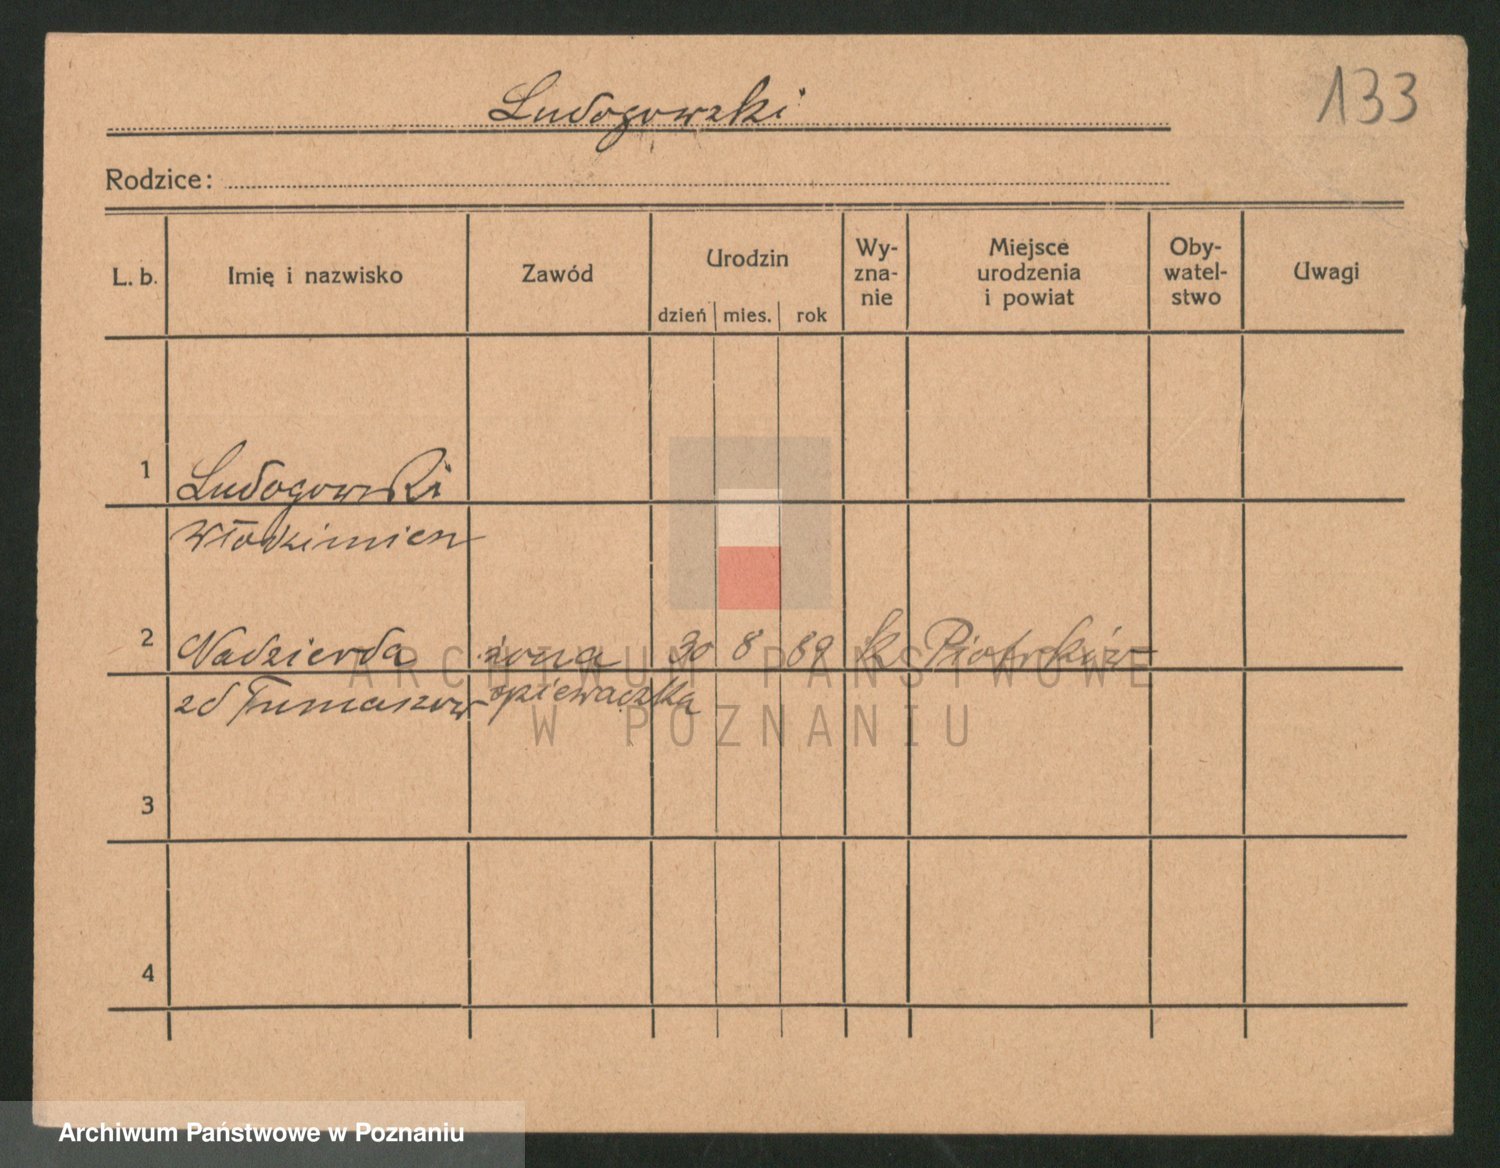 Ludogowski
133
Rodzice:
L. b. Imię i nazwisko Zawód Urodzin dzień mies. rok Wy-zna-nie Miejsce urodzenia i powiat Oby-watel-stwo Uwagi
1 Ludogowski
Włodzimierz
2 Nadzierda żona 30 8 89 k Piotrków
zd Tumaszow śpiewaczka
3
4
ARCHIWUM PAŃSTWOWE
W POZNANIU
Archiwum Państwowe w Poznaniu